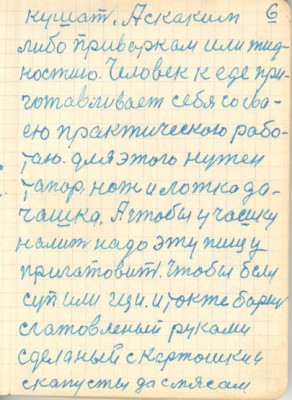 кушат. А скаким 6
либо приворкам или жид-
костию. Человек к еде при-
готавливает себя со сва-
ею практическою рабо-
таю. для этого нужен
тапор. нож и лотка да-
чашка. А чтобы у чашку
налит надо эту пищу
пригатовит. Чтобы были
суп или щи. и также борщ
сгатовленый руками
сделаный с картошки и
скапусты да смясам